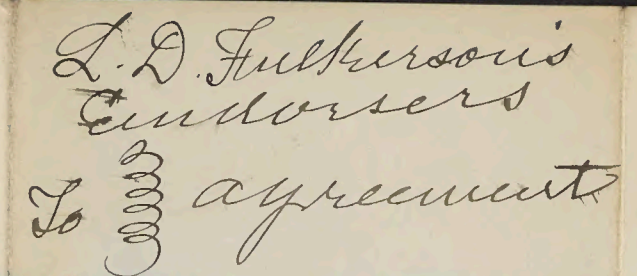 L. D. Fulkerson's
Endorsers
To agreement